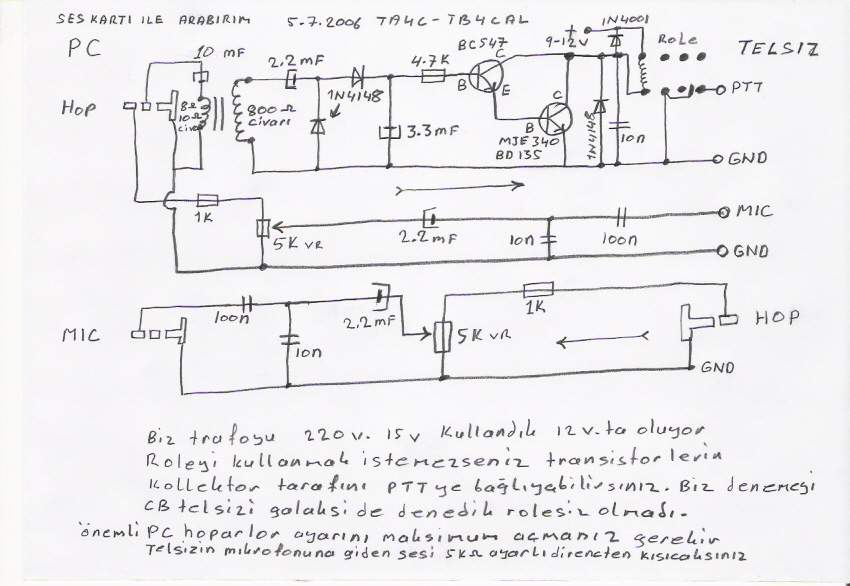 SES KARTI ILE ARABIRIM 5.7.2006 TA4C-TB4CAL
PC
10 mF
2.2mF
4.7K
BC547
C
B
E
9-12V
+
1N4001
Role
TELSIZ
PTT
Hop
8Ω
10Ω
Civarı
800Ω
civarı
1N4148
3.3mF
C
B
MJE340
BD135
1N4148
10n
GND
1K
5K VR
2.2mF
10n
100n
MIC
GND
MIC
100n
10n
2.2mF
5K VR
1K
HOP
GND
Biz trafoyu 220v. 15v Kullandık 12v.ta oluyor
Roleyi kullanmak istemezseniz transistorlerin
Kollektor tarafını PTTye bağlıyabilirsiniz. Biz denemeyi
CB telsizi galaksi de denedik rolesiz olmadı.
önemli PC hoparlor ayarını maksimum açmanız gerekir
Telsizin mikrofonuna giden sesi 5KΩ ayarlıdirencten kısıcaksınız